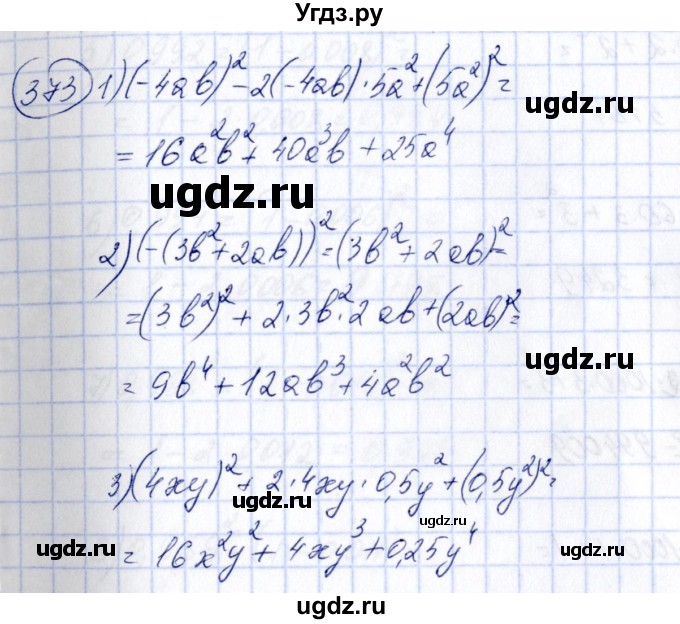 Угдз.ру
373 1) (-4ab)² - 2(-4ab)·5a² + (5a²)² =
= 16a²b² + 40a³b + 25a⁴
ugdz.ru
ugdz.ru
2) (-(3b² + 2ab))² = (3b² + 2ab)² =
= (3b²)² + 2·3b²·2ab + (2ab)² =
= 9b⁴ + 12ab³ + 4a²b²
3) (4xy)² + 2·4xy·0,5y² + (0,5y²)² =
ugdz.ru
ugdz.ru
= 16x²y² + 4xy³ + 0,25y⁴
ugdz.ru
ugdz.ru
ugdz.ru